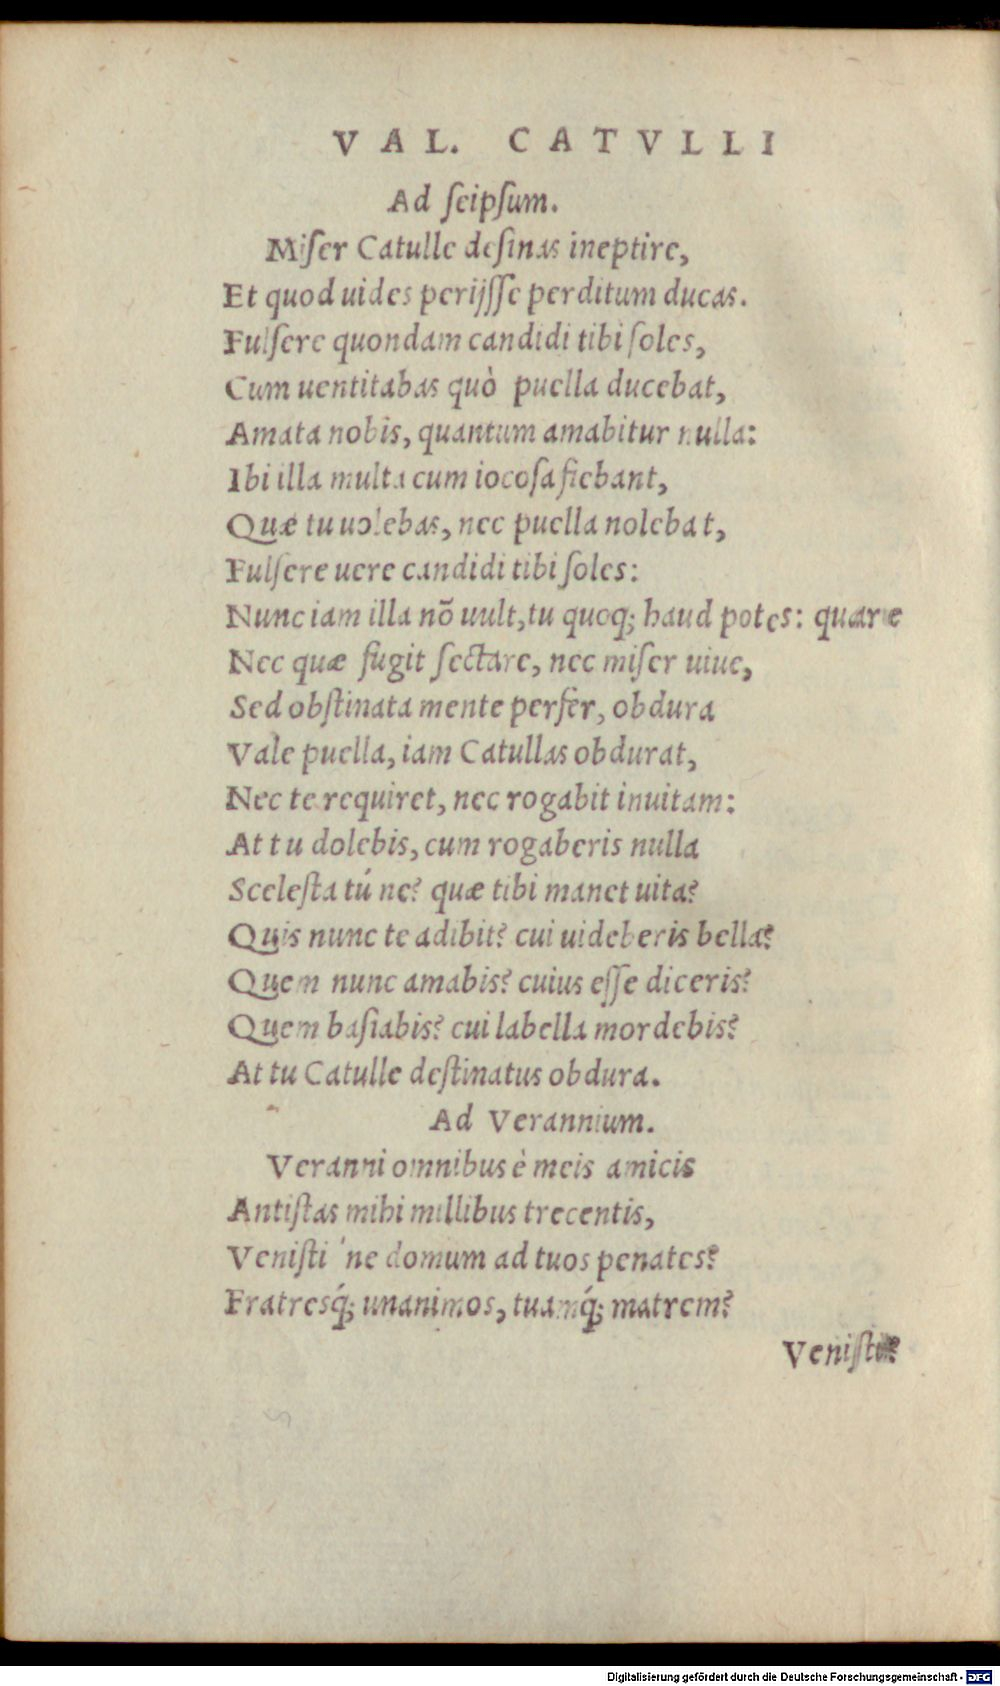 VAL. CATVLLI
Ad ſeipſum.
Miſer Catulle deſinas ineptire,
Et quod uides perijſſe perditum ducas.
Fulſere quondam candidi tibi ſoles,
Cum uentitabas quò puella ducebat,
Amata nobis, quantum amabitur nulla:
Ibi illa multa cum iocoſa fiebant,
Quæ tu uolebas, nec puella nolebat,
Fulſere uere candidi tibi ſoles:
Nunc iam illa nõ uult, tu quoq; haud potes: quare
Nec quæ fugit ſectare, nec miſer uiue,
Sed obſtinata mente perfer, obdura
Vale puella, iam Catullas obdurat,
Nec te requiret, nec rogabit inuitam:
At tu dolebis, cum rogaberis nulla
Sceleſta tú ne? quæ tibi manet uita?
Quis nunc te adibit? cui uideberis bella?
Quem nunc amabis? cuius eſſe diceris?
Quem baſiabis? cui labella mordebis?
At tu Catulle deſtinatus obdura.
Ad Verannium.
Veranni omnibus è meis amicis
Antiſtas mihi millibus trecentis,
Veniſti 'ne domum ad tuos penates?
Fratresq́; unanimos, tuamq́; matrem?
Veniſti?
Digitalisierung gefördert durch die Deutsche Forschungsgemeinschaft - DFG